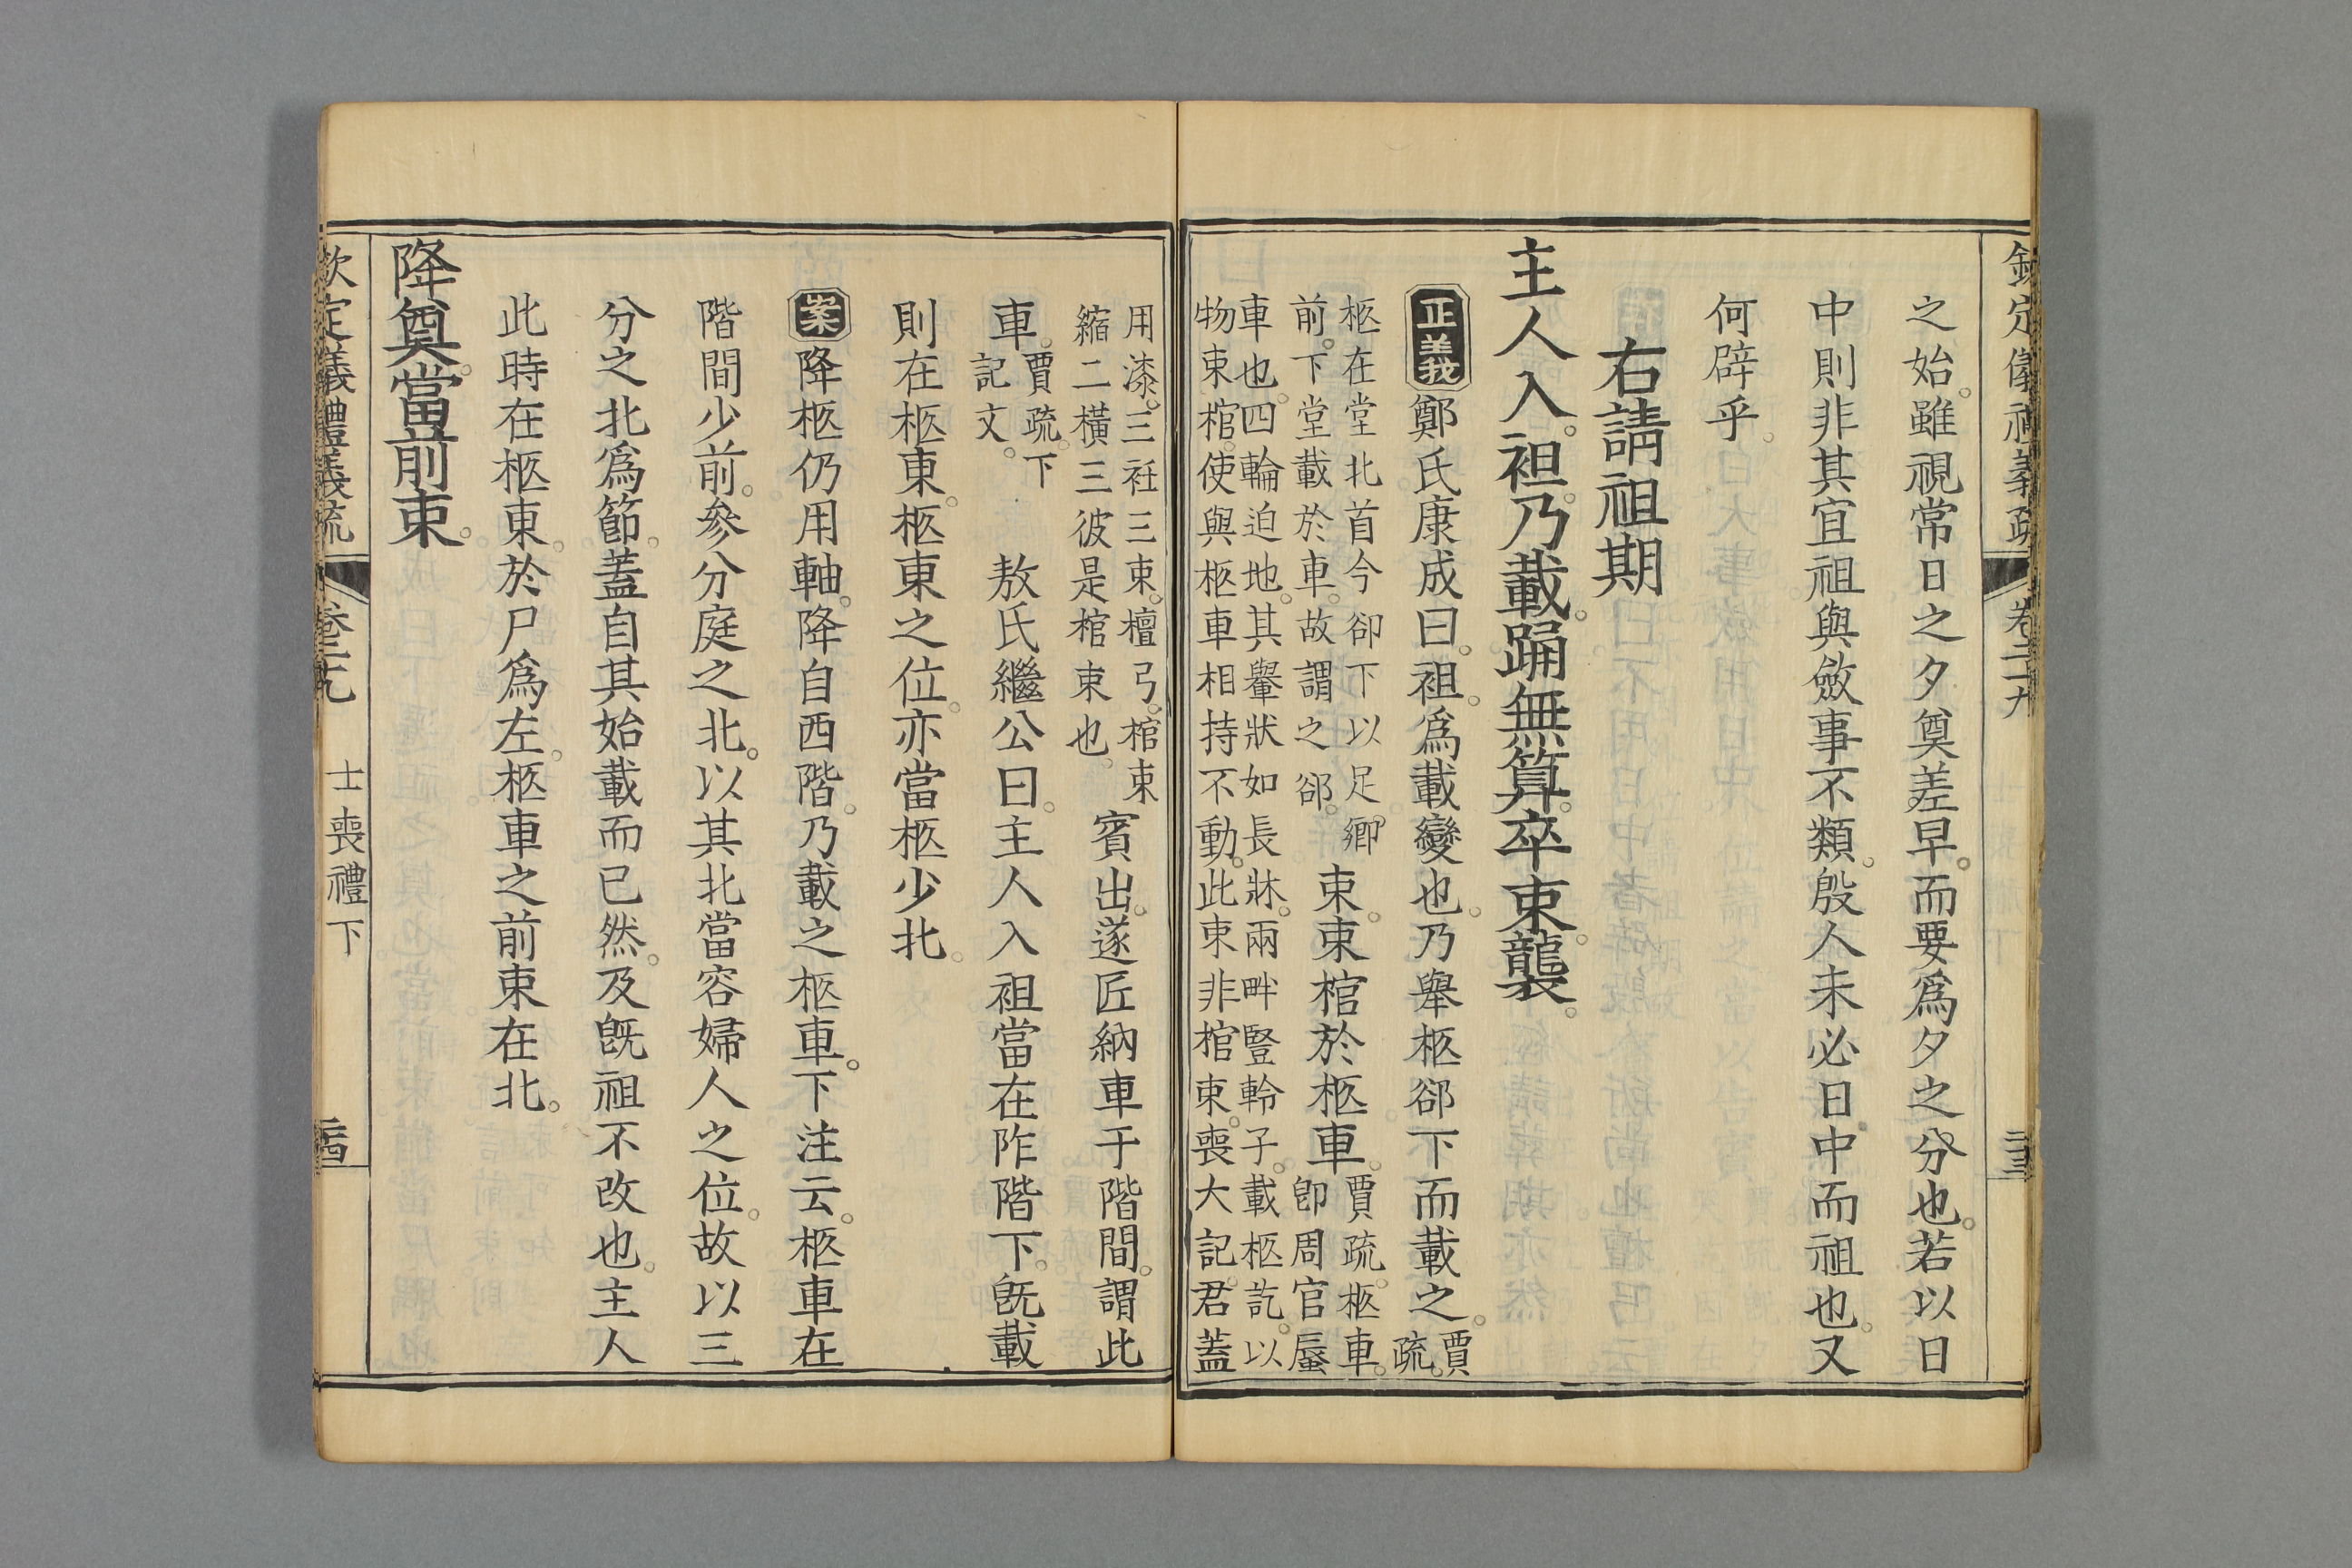 欽定儀禮義疏 卷二十九 二十三
之始。雖視常日之夕奠差早。而要爲夕之分也。若以日
中則非其宜祖與斂事不類。殷人未必日中而祖也。又
何辟乎。
右請祖期
主人入。袒。乃載。踊無算。卒束。襲。
正義 鄭氏康成曰。袒。爲載變也。乃舉柩郤下而載之。賈疏。
柩在堂北首今卻下以足鄉
前。下堂載於車。故謂之郤。
束。束棺於柩車。賈疏。柩車。
卽周官蜃
車也。四輪迫地。其轝狀如長牀。兩畔豎軨子。載柩訖。以
物束棺。使與柩車相持不動。此束非棺束。喪大記。君蓋
用漆。三衽三束。檀弓。棺束
縮二橫三彼是棺束也。
賓出。遂匠納車于階間。謂此
車。賈疏。下
記文。
敖氏繼公曰。主人入袒當在阼階下。旣載
則在柩東。柩東之位。亦當柩少北。
案 降柩仍用軸。降自西階。乃載之柩車。下注云。柩車在
階間少前。參分庭之北。以其北當容婦人之位。故以三
分之北爲節。蓋自其始載而已然。及旣祖不改也。主人
此時在柩東。於尸爲左。柩車之前束在北。
降奠。當前束。
欽定儀禮義疏 卷二十九 士喪禮下 二十四